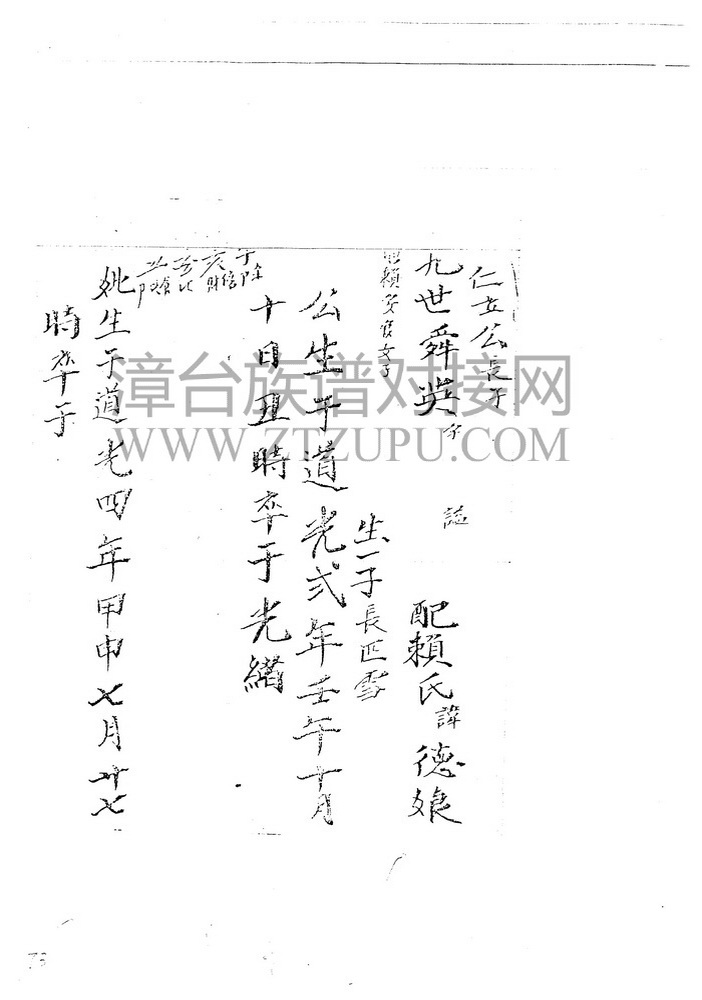 仁立公長子
九世舜英字
諡
配賴氏諱德娘
賴安官女子
生一子長匹雪
公生于道光弍年壬午十月
十日丑時卒于光緒
妣生于道光四年甲申七月廿七
時卒于
漳台族谱对接网
WWW.ZTZUPU.COM
73